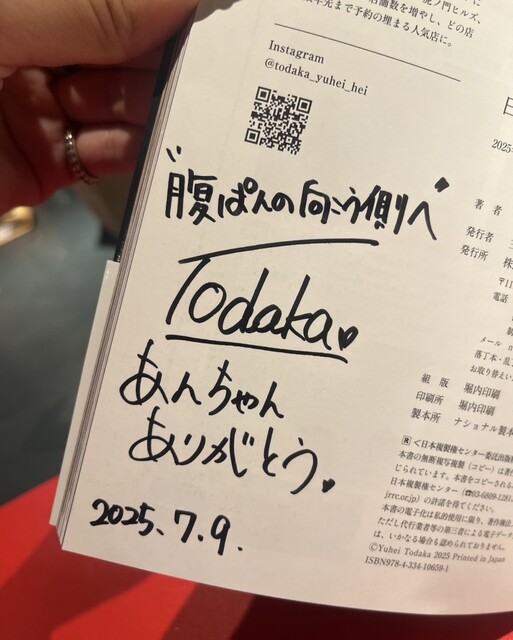 店舗数を増やし、どの店
年先まで予約の埋まる人気店に。
Instagram
@todaka_yuhei_hei
"腹ぱんの向こう側へ"
Todaka.
あんちゃん
ありがとう。
2025.7.9.
2025
著者
発行者
発行所 株
〒11
電話
メール
落丁本・乱丁
お取り替えい
組版 堀内印刷
印刷所 堀内印刷
製本所 ナショナル製本
<日本複製権センター委託出版
本書の無断複写複製(コピー)は著作
じられています。本書をコピーされる
日本複製権センター(☎03-6809-1281、
jrrc.or.jp)の許諾を得てください。
本書の電子化は私的使用に限り、著作権法上
ただし代行業者等の第三者による電子データ
は、いかなる場合も認められておりません。
©Yuhei Todaka 2025 Printed in Japan
ISBN978-4-334-10659-1